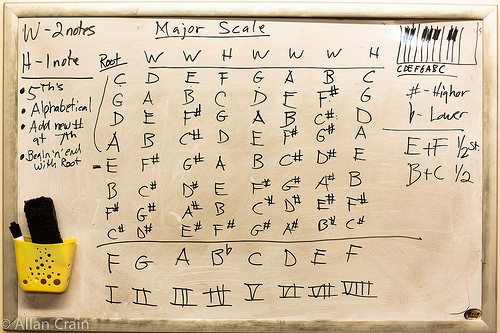 W - 2 notes
H - 1 note
• 5th's
• Alphabetical
• Add new # at 7th
• Begin 'n' end with Root
Major Scale
Root W W H W W W H
C D E F G A B C
G A B C D E F# G
D E F# G A B C# D
A B C# D E F# G# A
E F# G# A B C# D# E
B C# D# E F# G# A# B
F# G# A# B C# D# E# F#
C# D# E# F# G# A# B# C#
F G A Bb C D E F
I II III IV V VI VII VIII
CDEFGABC
# - Higher
b - Lower
E+F 1/2 st.
B+C 1/2
© Allan Crain